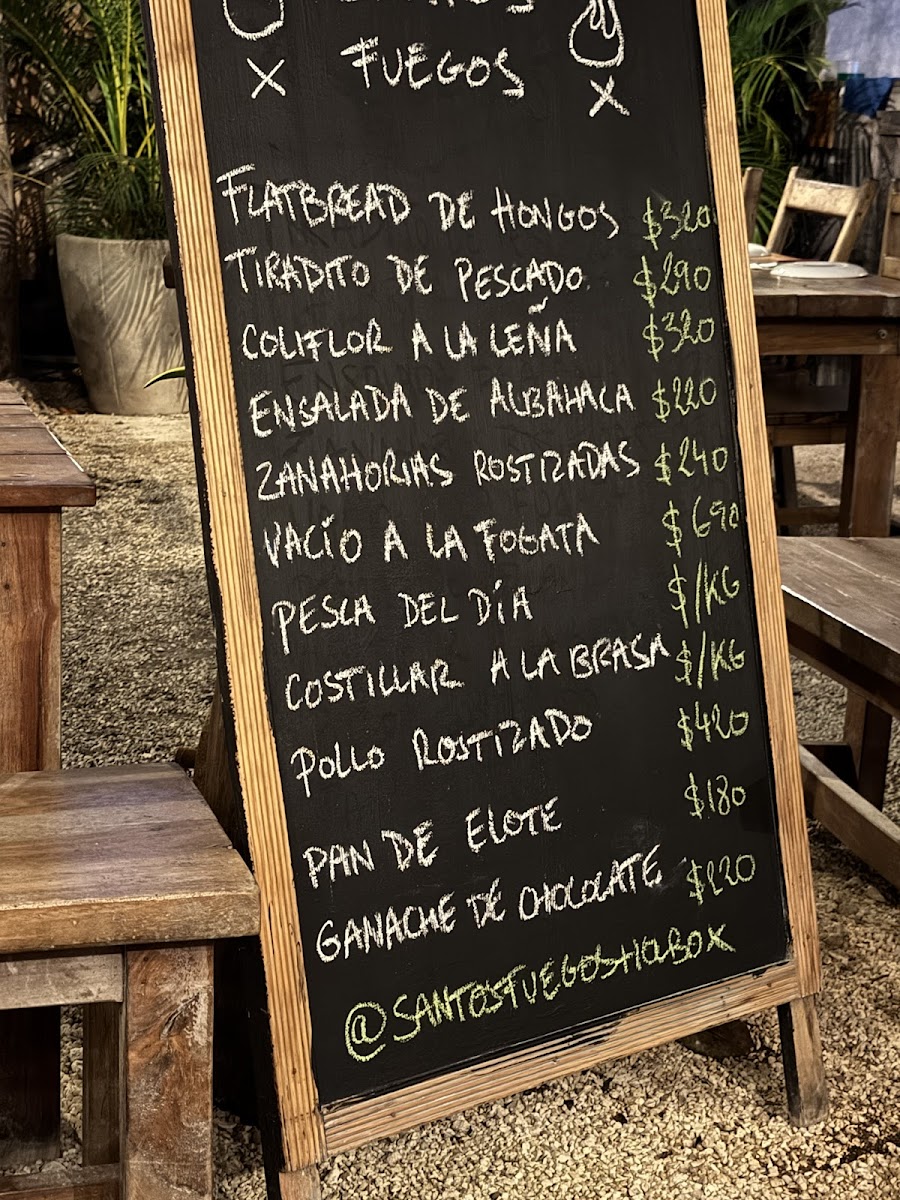 FUEGOS
X X
FLATBREAD DE HONGOS $320
TIRADITO DE PESCADO $290
COLIFLOR A LA LEÑA $320
ENSALADA DE ALBAHACA $220
ZANAHORIAS ROSTIZADAS $240
VACÍO A LA FOGATA $690
PESCA DEL DÍA $/KG
COSTILLAR A LA BRASA $/KG
POLLO ROSTIZADO $420
PAN DE ELOTE $180
GANACHE DE CHOCOLATE $220
@SANTOSFUEGOSHOLBOX